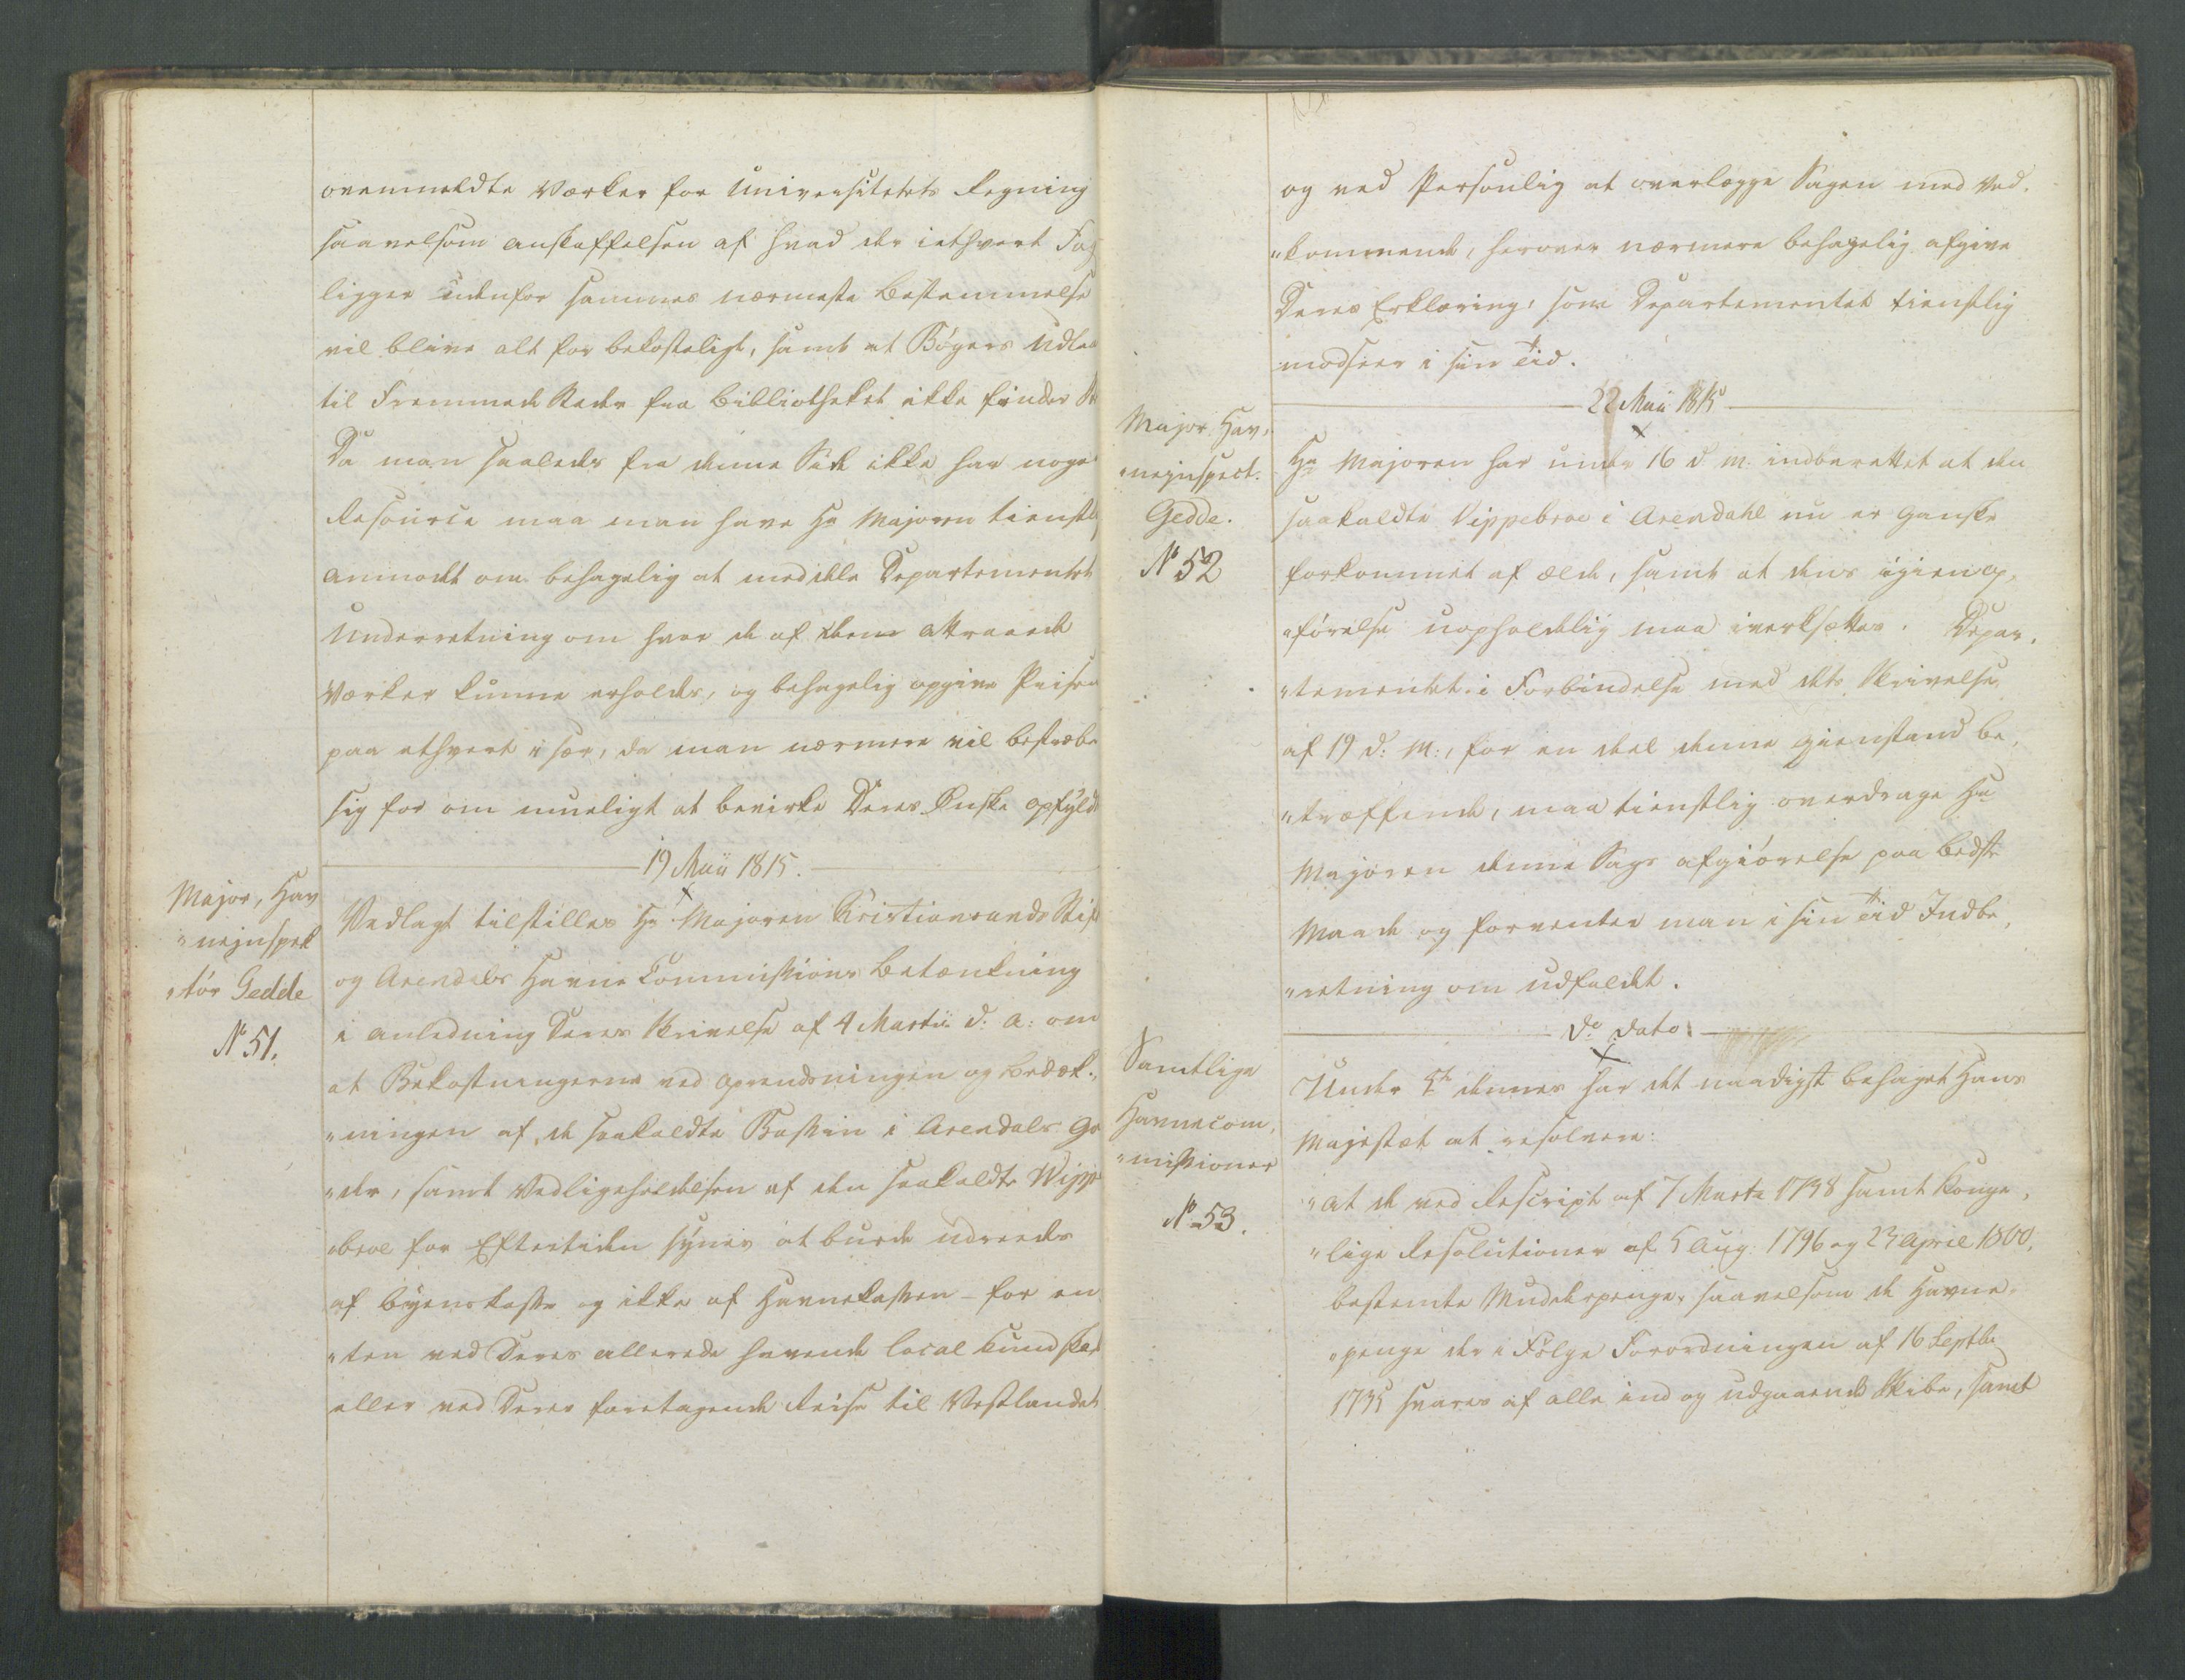 ovenmeldte Værker for Universitetets Regning
saavelsom anskaffelsen af hvad der iethvert Fag
ligger udenfor sammes nærmeste Bestemmelse
vil blive alt for bekosteligt, samt at Bøgers Udlaa
til Fremmede Stæder fra Bibliotheket ikke finder St
Da man saaledes fra denne Side ikke har nogen
Resource maa man have Hr Majoren tienstl
anmodet om behagelig at meddele Departementet
Underretning om hvor de af dem attraaede
Værker kunne erholdes, og behagelig opgive Prisen
paa ethvert i sær, da man nærmere vil bestræbe
sig for om mueligt at bevirke Deres Ønske opfyldt
19 Maii 1815.
Major, Hav
"neinspek
"tør Gedde
No 51.
Vedlagt tilstilles Hr Majoren Kristiansands Stift
og Arendals Havne Commissions Betænkning
i anledning Deres Skrivelse af 4 Martii d: A: om
at Bekostningerne ved oprensningen og Bedæk,
"ningen af de saakaldte Bassin i Arendals Ga
"der, samt Vedligeholdelsen af den saakaldte Wippe
"broe for Eftertiden synes at burde udreedes
af Byens kasse og ikke af Havnekassen - for en
"ten ved Deres allerede havende local kundskab
eller ved Deres foretagende Reise til Vestlandet
og ved Personlig at overlægge Sagen med Ved,
"kommende, herover nærmere behagelig afgive
Deres Erklæring, som Departementet tienstlig
modseer i sin Tid.
22 Maii 1815
Major, Hav,
"neinspect.
Gedde.
No 52
Hr Majoren har under 16 d. M. indberettet at den
saakaldte Vippebroe i Arendahl nu er ganske
forkommet af ælde, samt at dens igien op,
"førelse uopholdelig maa iverksættes. Depar,
"tementet i Forbindelse med dets Skrivelse
af 19 d: M:, for en deel denne gienstand be,
"træffende, maa tienstlig overdrage Hr
Majoren denne Sags afgiørelse paa bedste
Maade og forventer man i sin Tid Indbe,
"retning om udfaldet.
Do Dato
Samtlige
Havnecom,
"missioner
No 53.
Under 5te dennes har det naadigst behaget Hans
Majestæt at resolvere:
"at de ved Rescript af 7 Marts 1738 samt Konge,
"lige Resolutioner af 5 Aug: 1796 og 23 April 1800,
bestemte Mudderpenge, saavelsom de Havne,
"penge der i Følge Forordningen af 16 Septbr
1735 svares af alle ind og udgaaende Skibe, samt